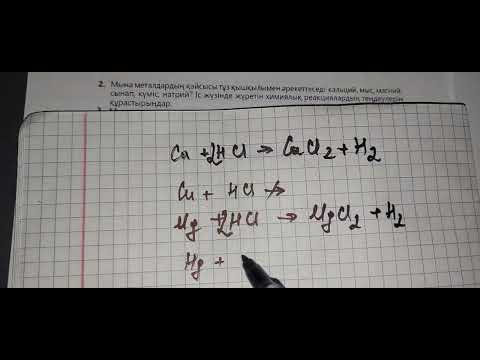 2. Мына металдардың қайсысы тұз қышқылымен әрекеттеседі: кальций, мыс, магний,
сынап, күміс, натрий? Іс жүзінде жүретін химиялық реакциялардың теңдеулерін
құрастырыңдар.
Ca + 2HCl → CaCl₂ + H₂
Cu + HCl ↛
Mg + 2HCl → MgCl₂ + H₂
Hg +